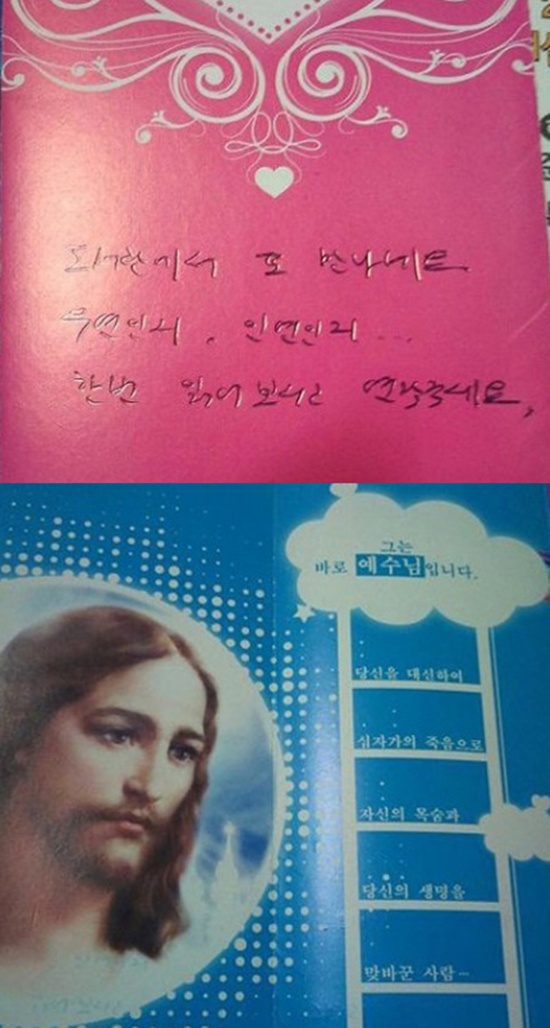 도서관에서 또 만나네요
우연인지, 인연인지...
한번 읽어보시고 연락주세요,
그는
바로 예수님입니다.
당신을 대신하여
십자가의 죽음으로
자신의 목숨과
당신의 생명을
맞바꾼 사람…